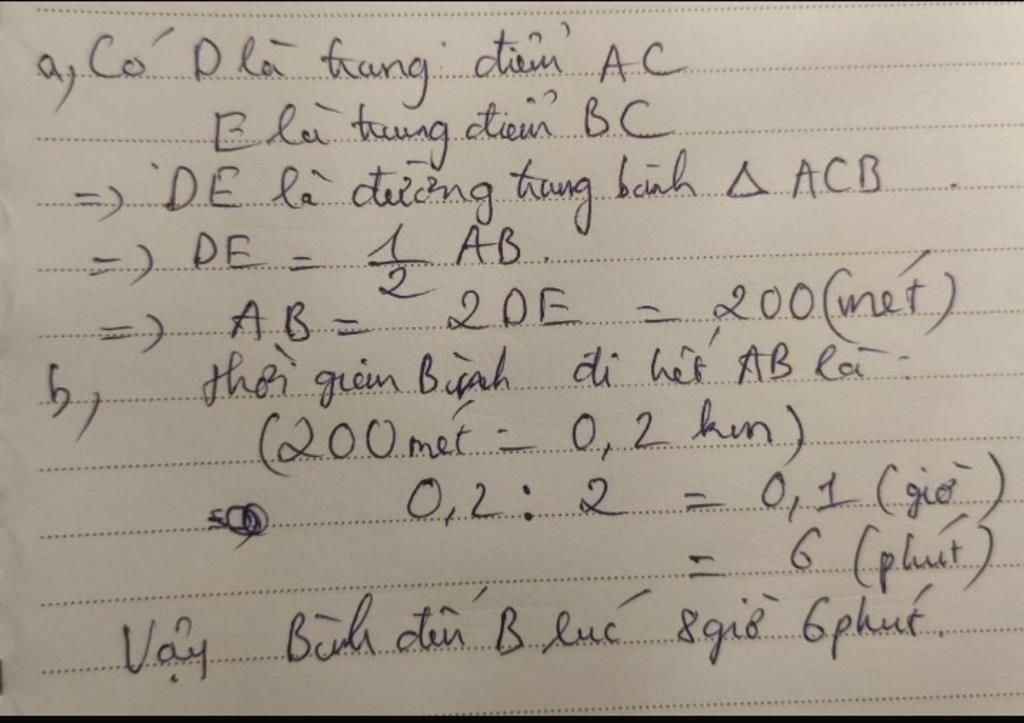 a, Có D là trung điểm AC
E là trung điểm BC
=> DE là đường trung bình Δ ACB
=> DE = 1/2 AB.
=> AB = 2DE = 200 (mét)
b, thời gian Bình đi hết AB là:
(200 mét = 0,2 km)
0,2 : 2 = 0,1 (giờ)
= 6 (phút)
Vậy Bình đến B lúc 8 giờ 6 phút.